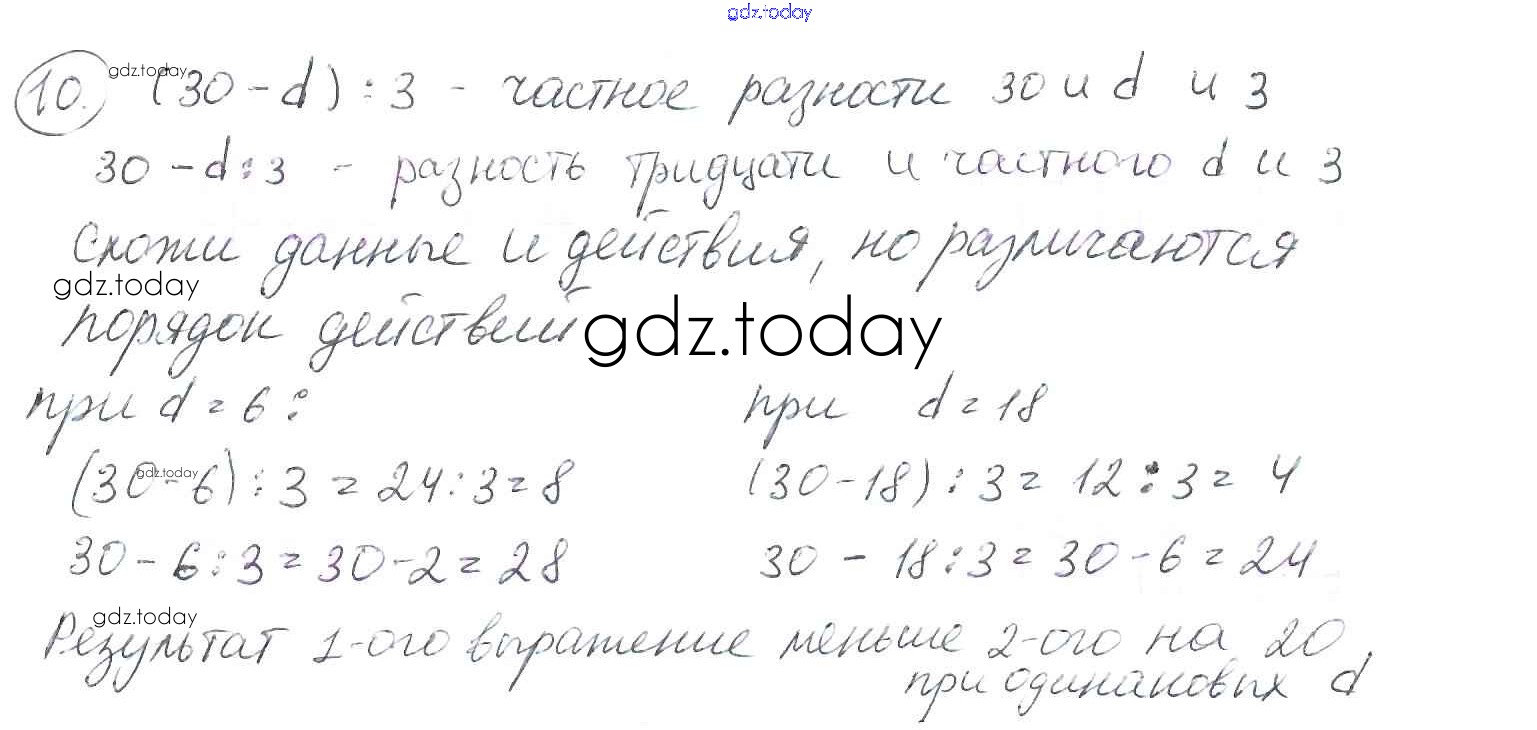 gdz.today
10. gdz.today (30 - d) : 3 - частное разности 30 и d и 3
30 - d : 3 - разность тридцати и частного d и 3
Схожи данные и действия, но различаются
gdz.today
порядок действий gdz.today
при d = 6 : при d = 18
(30 - 6) : 3 = 24 : 3 = 8 (30 - 18) : 3 = 12 : 3 = 4
gdz.today
30 - 6 : 3 = 30 - 2 = 28 30 - 18 : 3 = 30 - 6 = 24
gdz.today
Результат 1-ого выражение меньше 2-ого на 20,
при одинаковых d